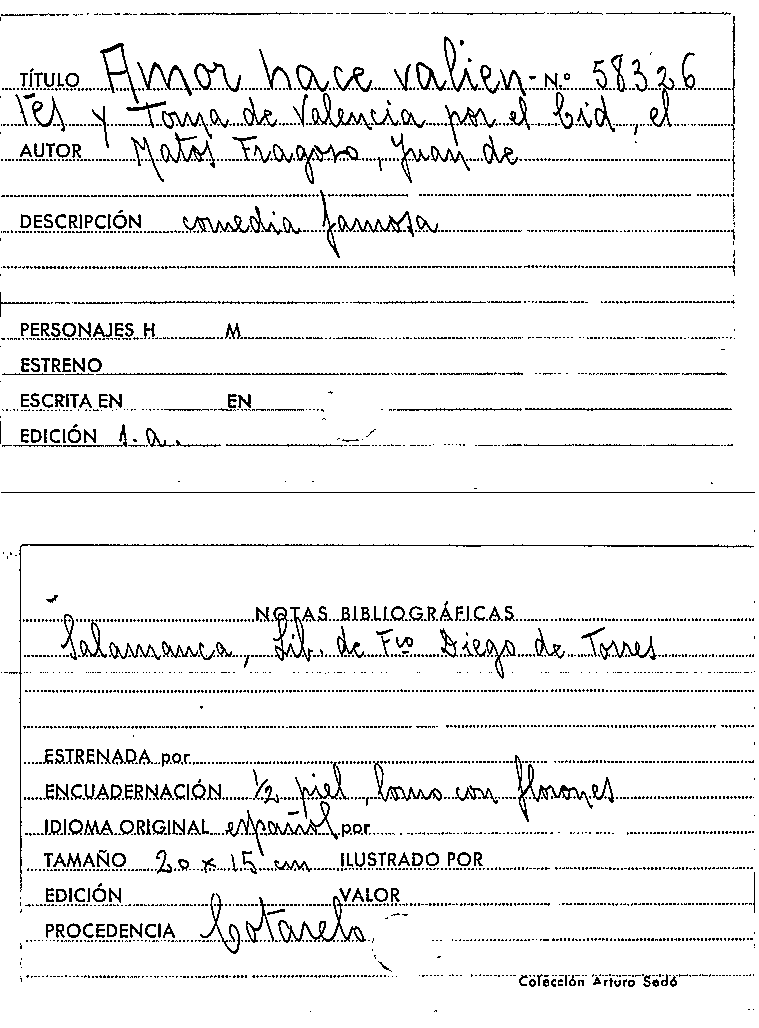 TÍTULO Amor hace valien- N.º 58326
tes y Toma de Valencia por el Cid, el
AUTOR Matos Fragoso, Juan de
DESCRIPCIÓN comedia famosa
PERSONAJES H M
ESTRENO
ESCRITA EN EN
EDICIÓN s.a.
NOTAS BIBLIOGRÁFICAS
Salamanca, Lib. de Fco Diego de Torres
ESTRENADA por
ENCUADERNACIÓN ½ piel, lomo con florones
IDIOMA ORIGINAL español por
TAMAÑO 20 x 15 cm ILUSTRADO POR
EDICIÓN VALOR
PROCEDENCIA Cotarelo
Colección Arturo Sedó